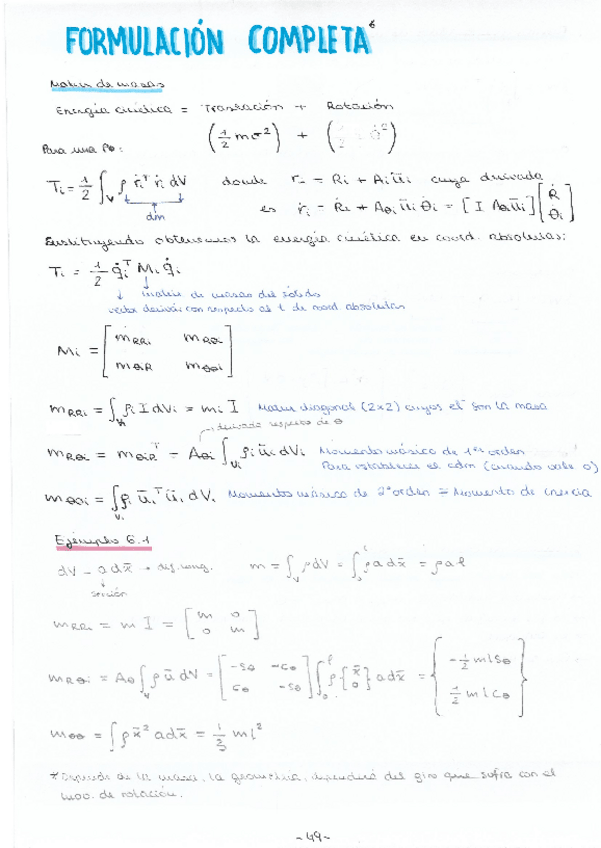 FORMULACIÓN COMPLETA 6
Matriz de masas
Energía cinética = Translación + Rotación
Para una PO: (1/2 m σ²) + (1/2 θ̇²)
Tᵢ = 1/2 ∫_V ρ ṙᵢᵀ ṙᵢ dV donde rᵢ = Rᵢ + Aᵢ ūᵢ cuya derivada
dm es ṙᵢ = Ṙᵢ + Aθᵢ ūᵢ θ̇ᵢ = [I Aθᵢ ūᵢ] [Ṙᵢ θ̇ᵢ]
Sustituyendo obtenemos la energía cinética en coord. absolutas:
Tᵢ = 1/2 q̇ᵢᵀ Mᵢ q̇ᵢ
matriz de masas del sólido
vector derivar con respecto al t de coord absolutas
Mᵢ = [mRRᵢ mRθᵢ
mθᵢR mθθᵢ]
mRRᵢ = ∫_Vᵢ ρᵢ I dVᵢ = mᵢ I Matriz diagonal (2x2) cuyos el. son la masa
derivada respecto de θ
mRθᵢ = mθᵢRᵀ = Aθᵢ ∫_Vᵢ ρᵢ ūᵢ dVᵢ Momento másico de 1er orden
Para establecer el cdm (cuando vale 0)
mθθᵢ = ∫_Vᵢ ρᵢ ūᵢᵀ ūᵢ dVᵢ Momento másico de 2º orden = Momento de inercia
Ejemplo 6.1
dV = a dx̄ → dif. long. m = ∫_V ρ dV = ∫₀ˡ ρ a dx̄ = ρ a l
sección
mRRᵢ = m I = [m 0
0 m]
mRθᵢ = Aθ ∫_V ρ ū dV = [-sθ -cθ
cθ -sθ] ∫₀ˡ ρ {x̄ 0} a dx̄ = {-1/2 m l sθ
1/2 m l cθ}
mθθ = ∫ ρ x̄² a dx̄ = 1/3 m l²
* Depende de la masa, la geometría, dependerá del giro que sufra con el
mov. de rotación.
-49-